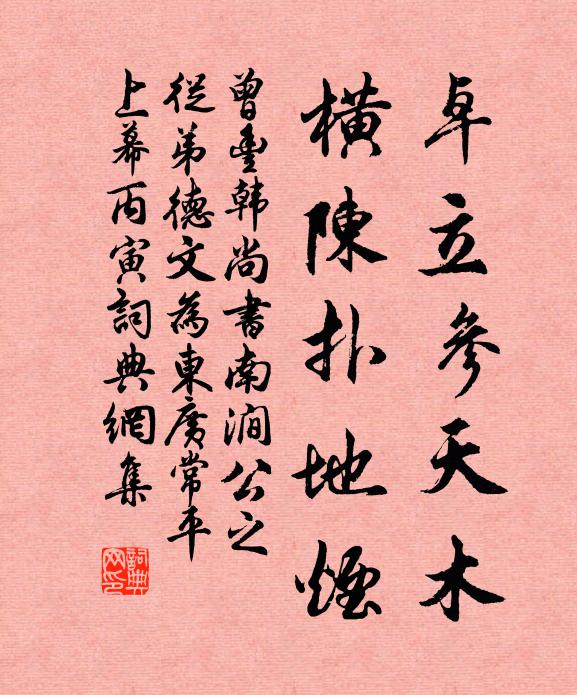 卓立參天木
橫陳扑地煙
曾豐韓尚書南澗公之
從弟德文為東廣常平
上幕丙寅詞典網集
詞典网印